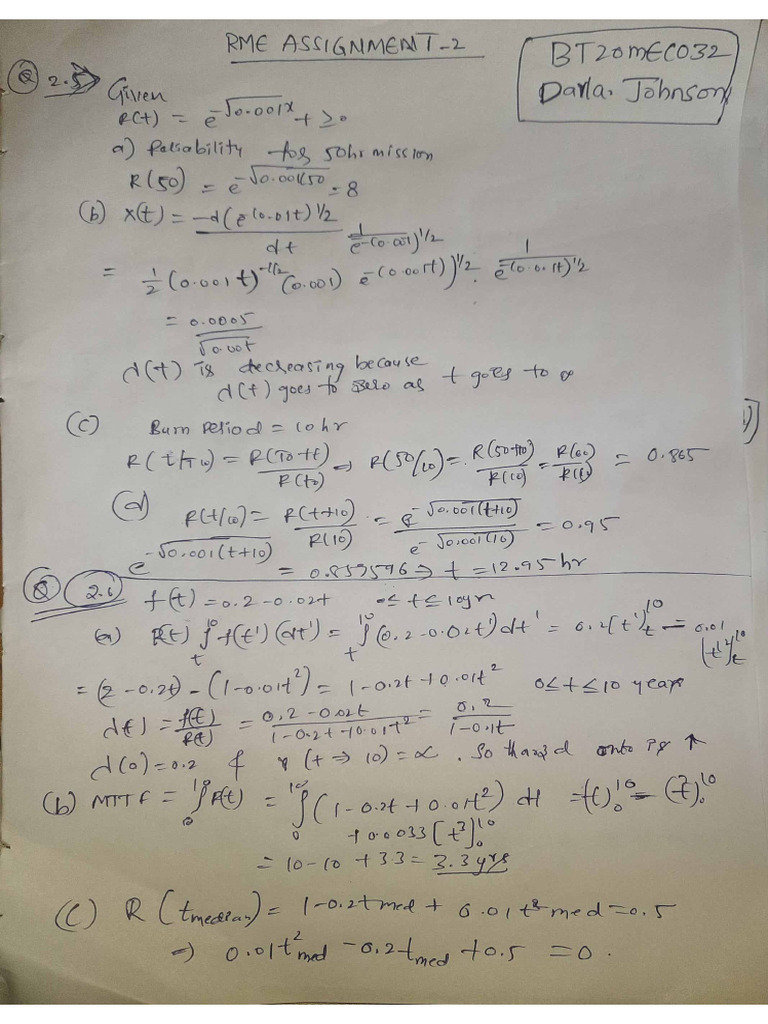 RME ASSIGNMENT-2
BT20MEC032
Darla. Johnson
Q 2.5
Given
R(t) = e^-√0.001x t ≥ 0
a) Reliability for 50hr mission
R(50) = e^-√0.001(50 = 8
(b) λ(t) = -d(e^(0.01t)^1/2 / dt 1/e^-(0.001)^1/2
= 1/2 (0.001t)^-1/2 (0.001) e^-(0.001t))^1/2 . 1/e^-(0.01t)^1/2
= 0.0005/√0.00t
λ(t) is decreasing because
λ(t) goes to zero as t goes to ∞
(c) Burn Period = 10hr
R(t/T10) = R(T0+t)/R(t0) ⇒ R(50/10) = R(50+10)/R(10) = R(60)/R(10) = 0.865
(d) R(t/10) = R(t+10)/R(10) = e^-√0.001(t+10)/e^-√0.001(10) = 0.95
e^-√0.001(t+10) = 0.859596 ⇒ t = 12.95hr
Q 2.6 f(t) = 0.2-0.02t 0≤t≤10yr
(a) R(t) ∫t^10 f(t')(dt') = ∫t^10 (0.2-0.02t')dt' = 0.2[t']t^10 - 0.01[t'^2]t^10
= (2-0.2t) - (1-0.01t^2) = 1-0.2t+0.01t^2 0≤t≤10 years
λ(t) = f(t)/R(t) = 0.2-0.02t/1-0.2t+0.01t^2 = 0.2/1-0.1t
λ(0) = 0.2 & λ(t⇒10) = ∝ . So
(b) MTTF = ∫0^10 R(t) = ∫0^10 (1-0.2t+0.01t^2) dt = t()0^10 - (t^2)0^10
+0.0033[t^3]0^10
= 10-10+3.3 = 3.3yrs
(C) R(tmedian) = 1-0.2tmed + 0.01t^2med = 0.5
⇒ 0.01t^2med - 0.2tmed + 0.5 = 0.